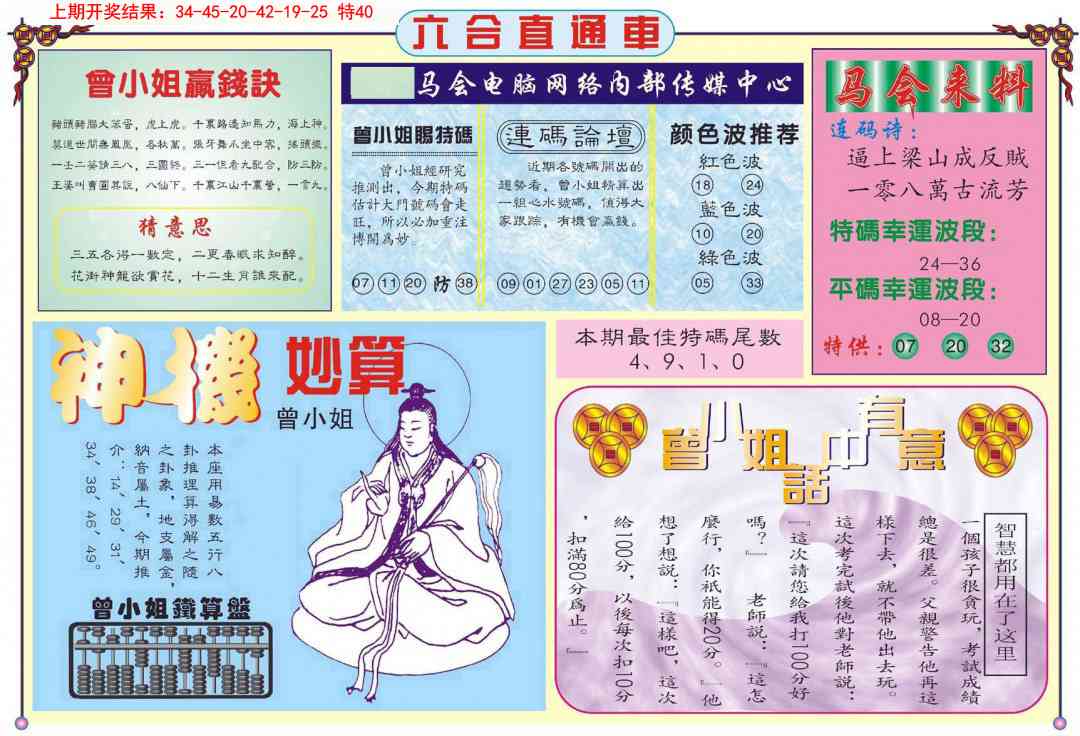 上期开奖结果：34-45-20-42-19-25 特40
六合直通車
曾小姐贏錢訣
王婆叫賣圖其說，八仙下。千裏江山千裏營，一言九。
猜意思
三五各得一數定，二更春眠求知醉。
花街神龍欲賞花，十二生肖誰來配。
马会电脑网络内部传媒中心
曾小姐賜特碼
曾小姐經研究
推測出，今期特碼
估計大門號碼會走
旺，所以必加重注
博開爲妙
07 11 20 防 38
連碼論壇
近期各號碼開出的
趨勢看，曾小姐精算出
一組心水號碼，值得大
家跟踪，有機會贏錢。
09 01 27 23 05 11
颜色波推荐
紅色波
18 24
藍色波
10 20
綠色波
05 33
马会来料
连码诗：
逼上梁山成反賊
一零八萬古流芳
特碼幸運波段：
24—36
平碼幸運波段：
08—20
特供：07 20 32
神機妙算
曾小姐
本座用易數五行八
卦推理算得解之隨
之卦象，地支屬金，
納音屬土，今期推
介：14、29、31、
34、38、46、49。
曾小姐鐵算盤
本期最佳特碼尾數
4、9、1、0
曾小姐話中有意
智慧都用在了这里
一個孩子很貪玩，考試成績
總是很差。父親警告他再這
樣下去，就不帶他出去玩。
這次考完試後他對老師說：
『這次請您給我打100分好
嗎？』 老師說：『這怎
麼行，你祇能得20分。』他
想了想說：『這樣吧，這次
給100分，以後每次扣10分
，扣滿80分爲止。』